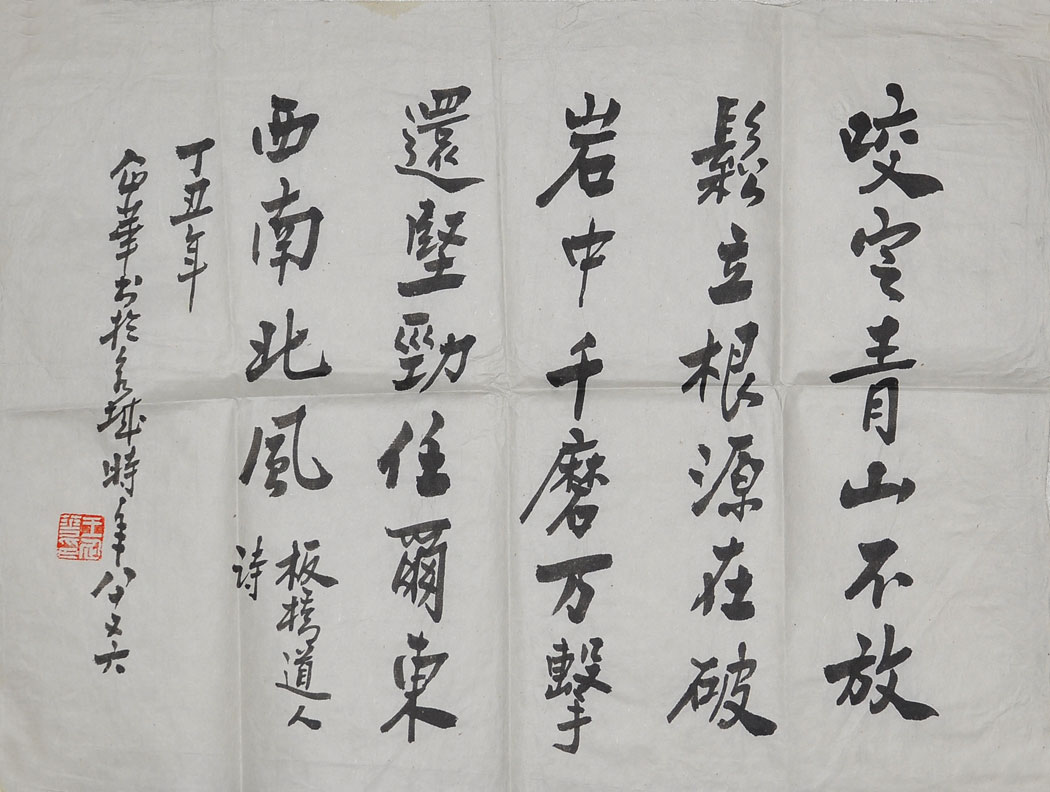 咬定青山不放
鬆立根源在破
岩中千磨万擊
還堅勁任爾東
西南北風
板橋道人
詩
丁丑年
企華书於城時年八十又六
王企華印